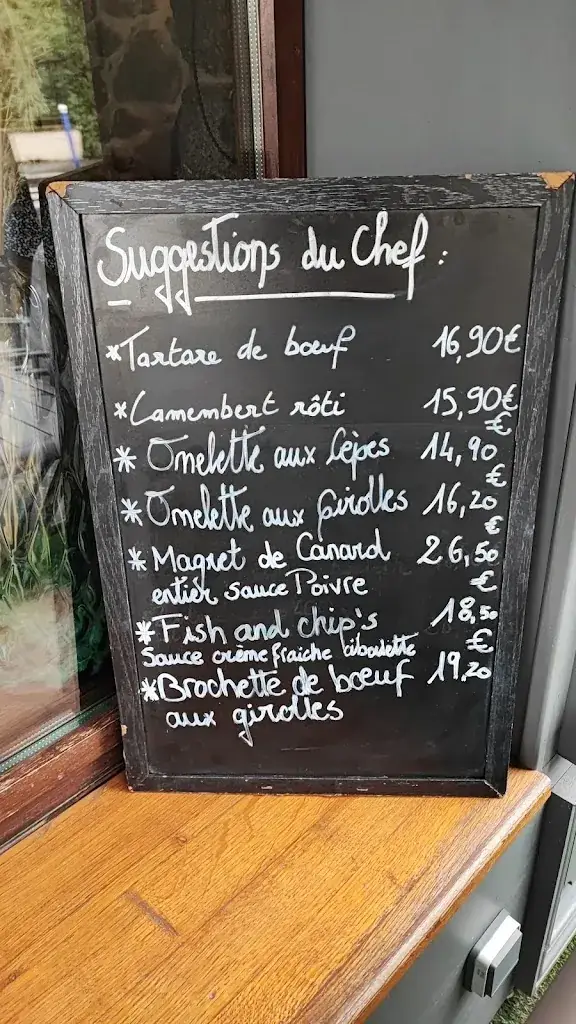 Suggestions du Chef :
*Tartare de bœuf 16,90€
*Camembert rôti 15,90€
* Omelette aux Cèpes 14,90€
* Omelette aux girolles 16,20€
* Magret de Canard 26,50€
entier sauce Poivre
*Fish and chip's 18,50€
Sauce crème fraiche ciboulette
*Brochette de bœuf 19,20€
aux girolles